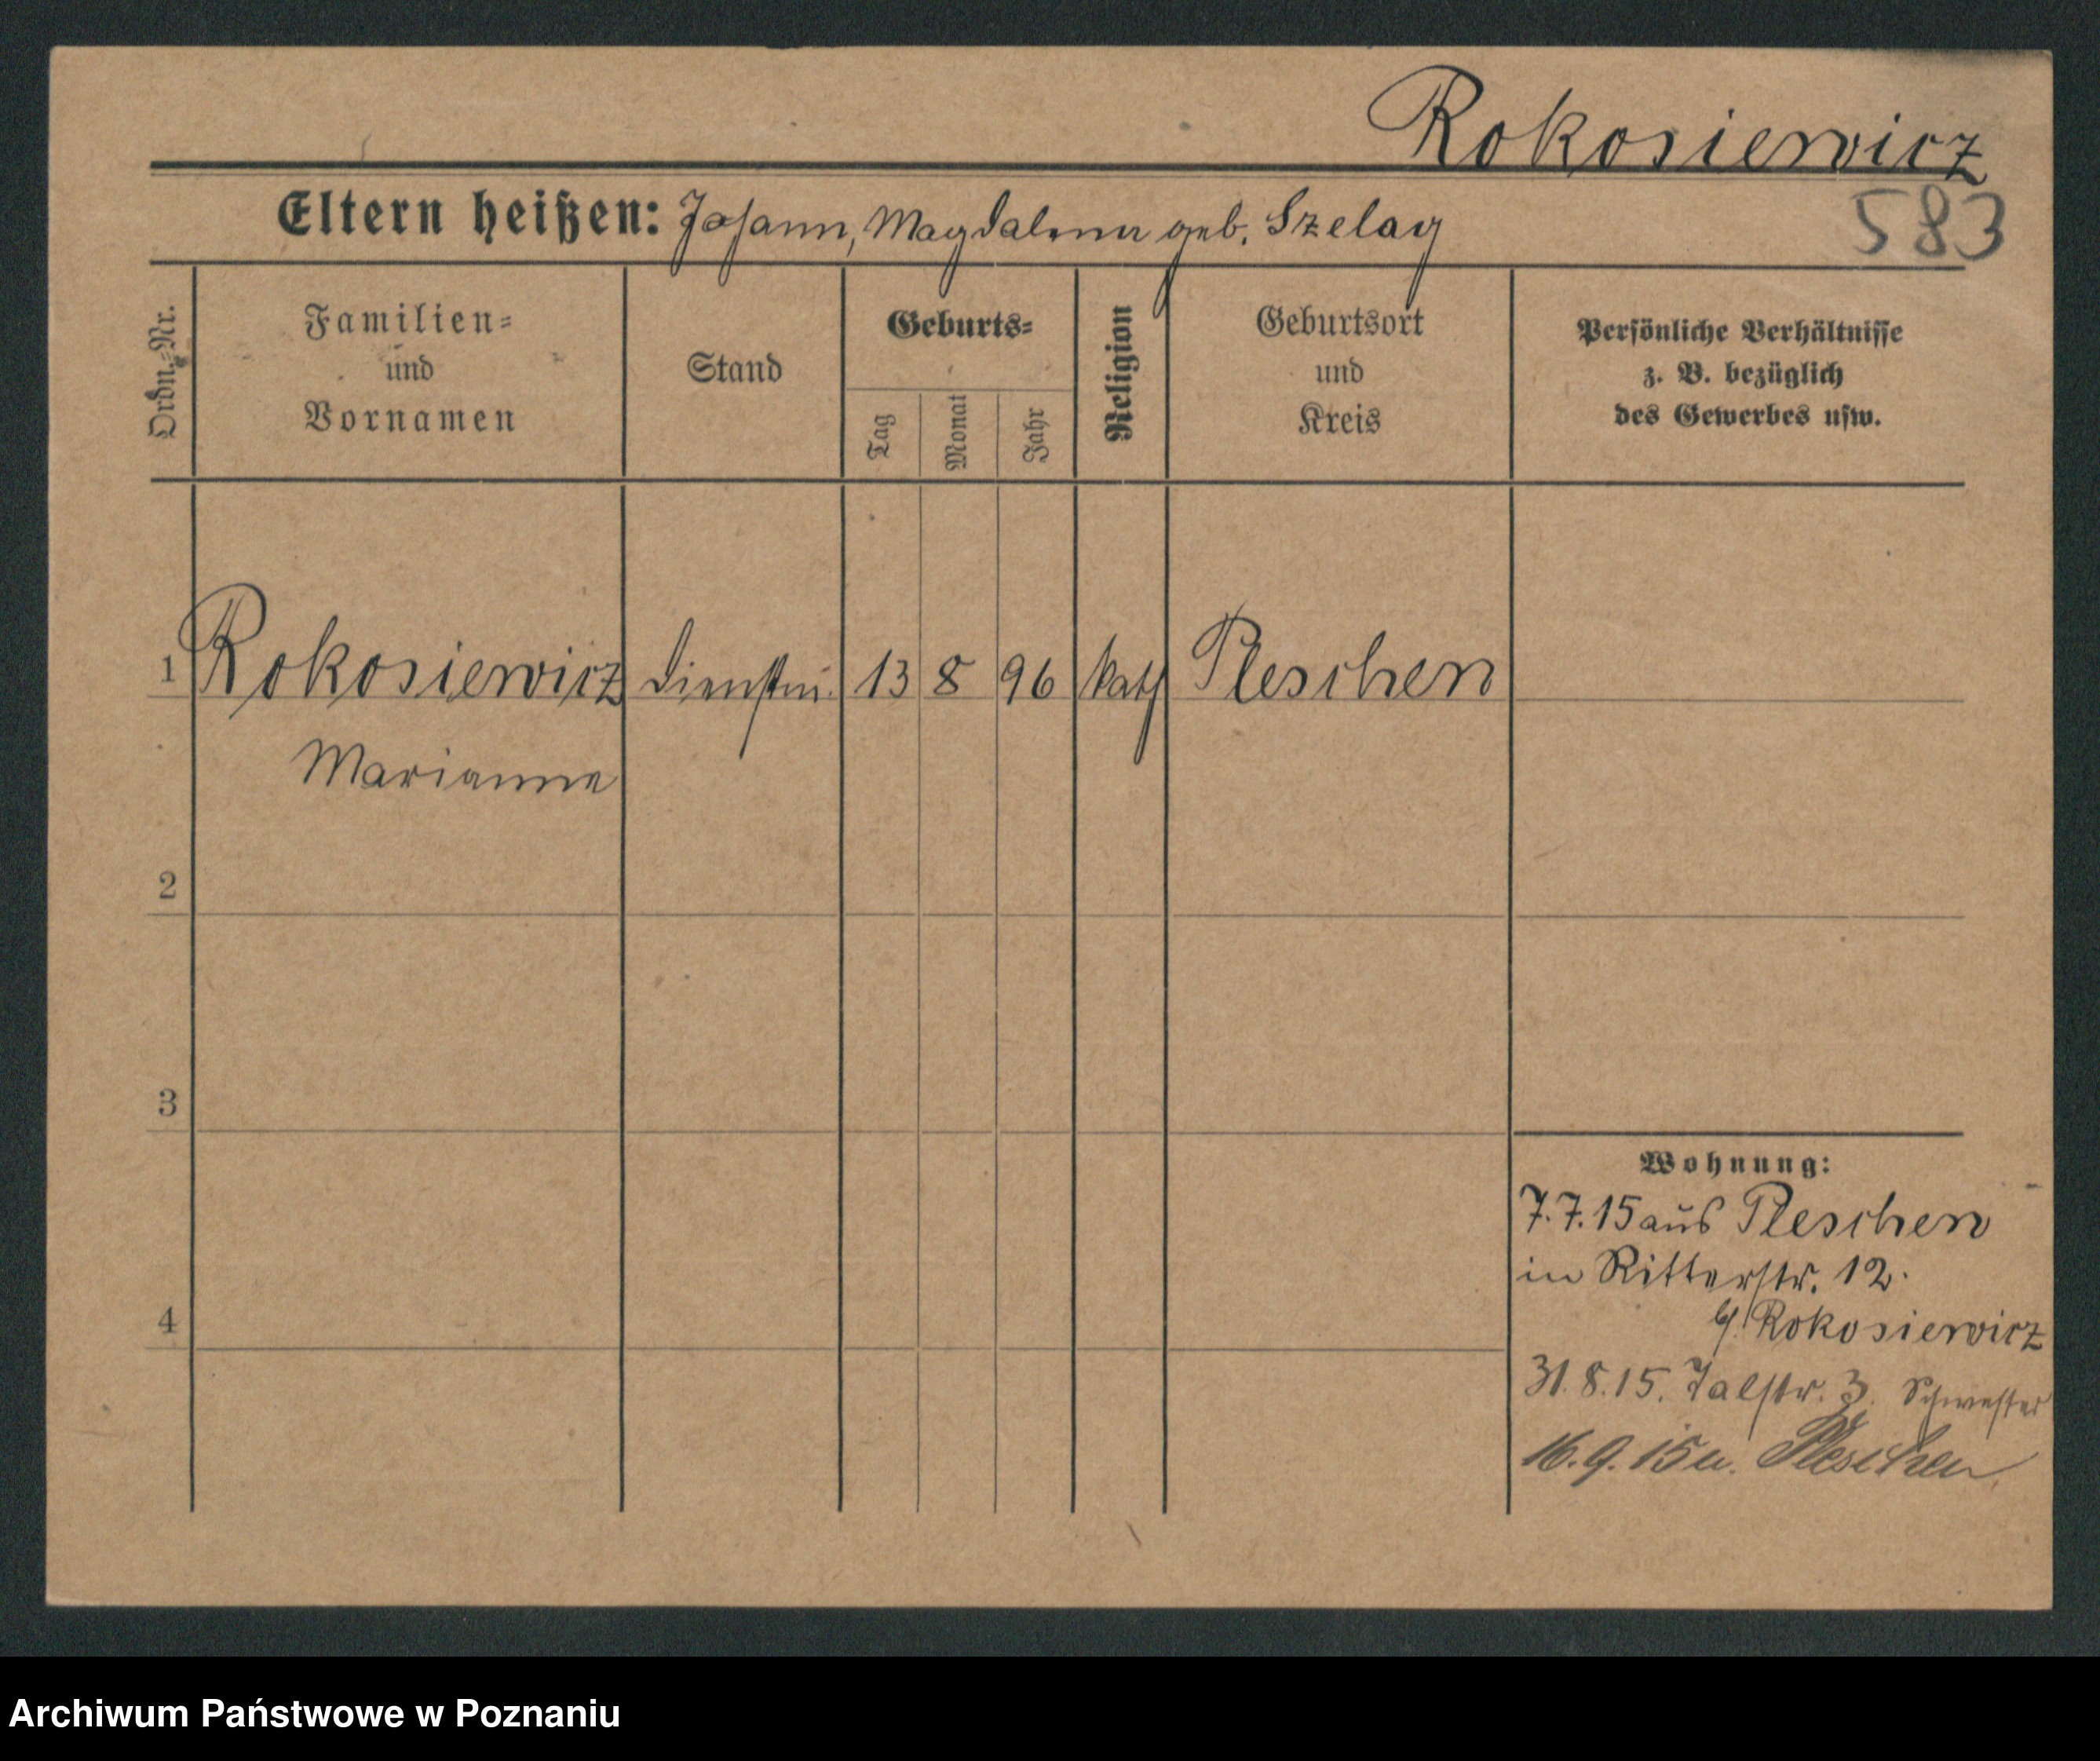 Rokosiewicz
583
Eltern heißen: Johann, Magdalena geb. Szelag
Ordn.-Nr.
Familien-
und
Vornamen
Stand
Geburts-
Tag
Monat
Jahr
Religion
Geburtsort
und
Kreis
Persönliche Verhältnisse
z. B. bezüglich
des Gewerbes usw.
1 Rokosiewicz Dienstm. 13 8 96 kath Pleschen
Marianne
2
3
4
Wohnung:
7.7.15 aus Pleschen
in Ritterstr. 12.
b/ Rokosiewicz
31.8.15. Talstr. 3. Schwester
16.9.15 n. Pleschen
Archiwum Państwowe w Poznaniu